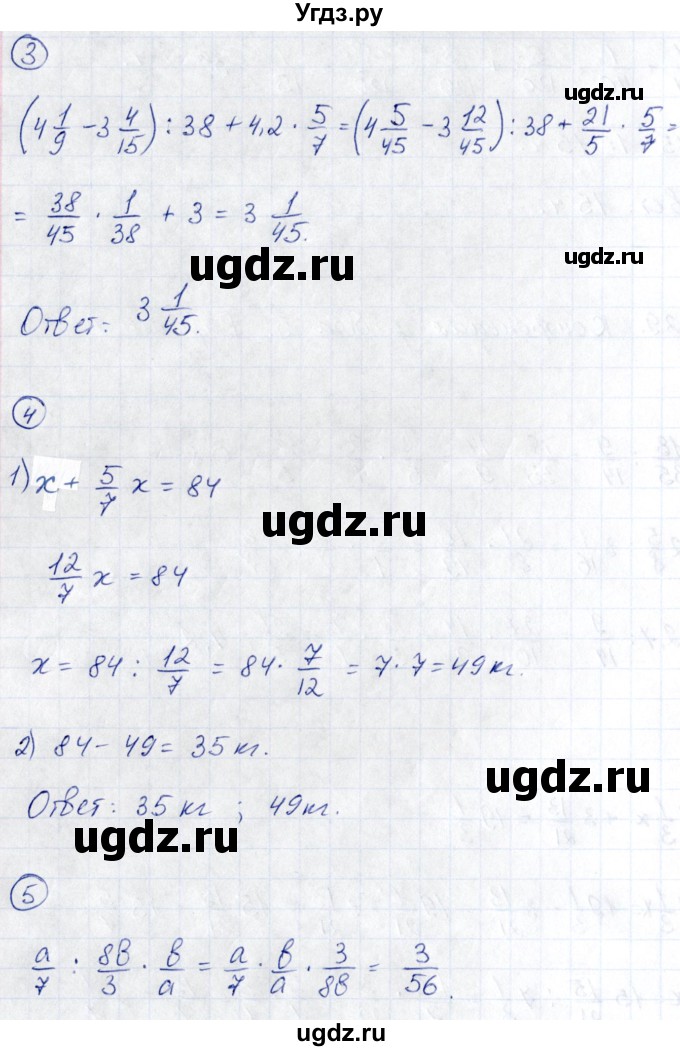 Угдз.ру
3
ugdz.ru
(4 1/9 − 3 4/15) : 38 + 4,2 · 5/7 = (4 5/45 − 3 12/45) : 38 + 21/5 · 5/7 =
= 38/45 · 1/38 + 3 = 3 1/45.
ugdz.ru
ugdz.ru
Ответ: 3 1/45.
4
ugdz.ru
1) x + 5/7 x = 84
ugdz.ru
12/7 x = 84
x = 84 : 12/7 = 84 · 7/12 = 7 · 7 = 49 кг.
2) 84 − 49 = 35 кг.
ugdz.ru
Ответ: 35 кг ; 49 кг.
ugdz.ru
5
a/7 : 8в/3 · в/a = a/7 · в/a · 3/8в = 3/56.
ugdz.ru